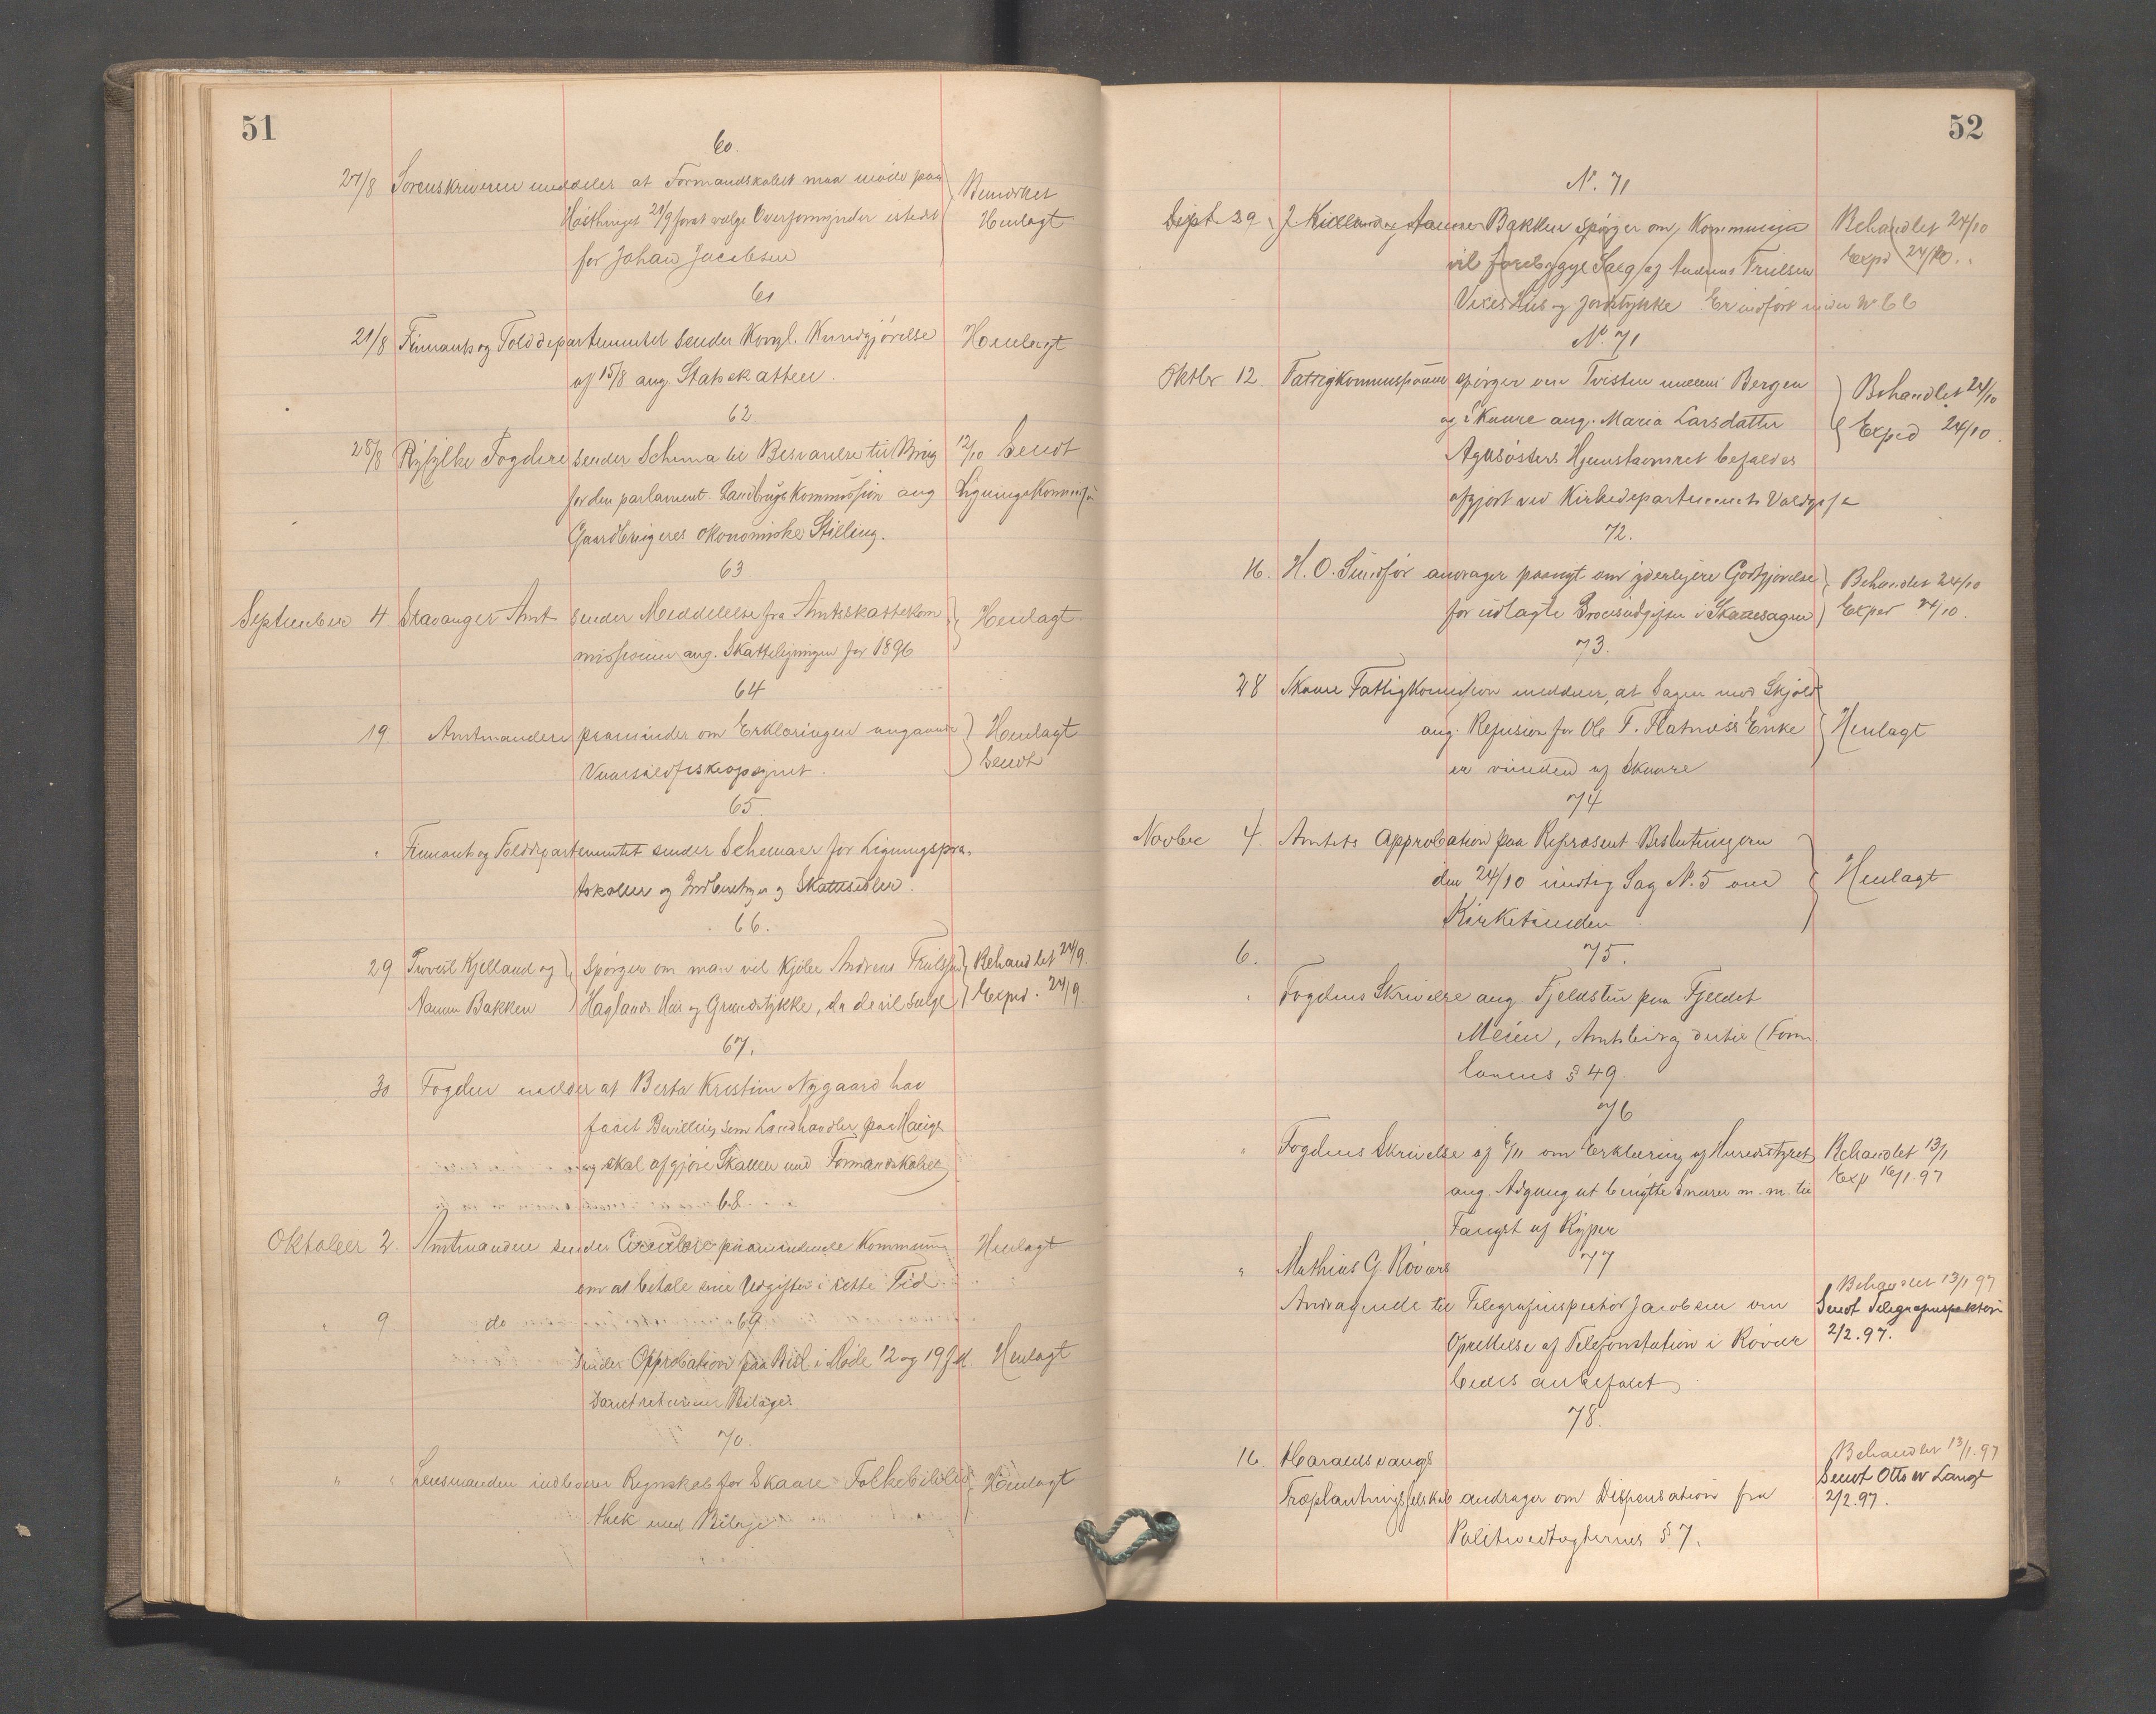 51
60.
27/8 Sorenskriveren meddeler at Formandskabet maa møde paa Bemerket
Høstthinget 21/9 forat vælge Overformynder istedet Henlagt
for Johan Jacobsen
61
21/8 Finants og Tolddepartementet sender Kongl. Kundgjørelse Henlagt
af 15/8 ang. Statsskatten.
62
28/8 Ryfylke Fogderi sender Schema til Besvarelse til Brug 12/10 Sendt
for den parlament. Landbrugskommission ang Ligningskommis
Gaardbrugeres økonomiske Stilling.
63
September 4 Stavanger Amt sender Meddelelse fra Amtsskattekom Henlagt
missionen ang. Skatteligningen for 1896
64
19 Amtmanden paaminder om Erklæringen angaaende Henlagt
Vaarsildfiskeopsynet. Sendt
65
" Finants og Tolddepartementet sender Schemaer for Ligningspro-
tokoller og Indberetnger og Skattesedler.
66.
29 Kjelland og Spørger om man vil Kjøbe Andreas Trulssen Behandlet 24/9.
Bakken Haglands Hus og Grundstykke, da de vil sælge Exped. 24/9.
67.
30 Fogden melder at Berta Kristine Nygaard har
faaet Bevilling som Landhandler paa Hauge
og skal afgjøre Skatten med Formandskabet
68.
Oktober 2. Amtmanden sender Circulære paamindende Kommunen Henlagt
om at betale sine Udgifter i rette Tid
" 9 do 69
sender Approbation paa Besl i Møde 12 og 19 f.M. Henlagt
Samt returnerer Bilager
70.
" " Lensmanden indleverer Regnskab for Skaare Folkebiblio Henlagt
thek med Bilage
52
N. 71
Sept. 29 J. Kielland og Bakken spørger om Kommunen Behandlet 24/10
vil forebygge Salg af Andreas Trulsens Exped 24/10.
Hus og Jordstykke Er indført under No 66
N. 71
Oktbr 12. Fattigkommissionen spørger om Tvisten mellem Bergen Behandlet 24/10
og Skaare ang. Maria Larsdatter Exped 24/10.
Hjemstavnsret befales
afgjort ved Kirkedepartementets Voldgift
72.
16. H. O. Sundfør andrager paanyt om yderligere Godtgjørelse Behandlet 24/10
for udlagte Procesudgifter i Skaaresagen Exped 24/10.
73.
28 Skaare Fattigkommission meddeler, at Sagen mod Skjold
ang. Refusion for Ole T. Flatnæs's Enke Henlagt
er vunden af Skaare
74
Novbr 4. Amtets Approbation paa Repræsent Beslutningern
den 24/10 undtag Sag N. 5 om Henlagt
Kirketienden
6. 75.
" Fogdens Skrivelse ang. Fjeldstue paa Fjeldet
Meien, Amtsbidrag dertil (Form.
lovens § 49.
76
" Fogdens Skrivelse af 6/11 om Erklæring af Herredsstyret Behandlet 13/1
ang. Adgang at benytte Snarer m. m. til Exp 16/1.97
Fangst af Ryper
77
" Mathias G. Røvær Behandlet 13/1 97
Andragende til Telegrafinspektør Jacobsen om Sendt Telegrafinspektøren
Oprettelse af Telefonstation i Røvær 2/2.97.
bedes anbefalet
78.
16. Haraldsvangs Behandlet 13/1.97
Træplantningsselskab andrager om Dispensation fra Sendt Otto W Lange
Politivedtægternes § 7. 2/2.97.